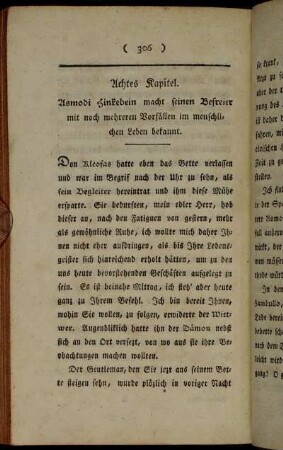 ( 306 )
Achtes Kapitel.
Asmodi Hinkebein macht seinen Befreier
mit noch mehreren Vorfällen im menschli-
chen Leben bekannt.
Don Kleofas hatte eben das Bette verlassen
und war im Begrif nach der Uhr zu sehn, als
sein Begleiter hereintrat und ihm diese Mühe
ersparte. Sie bedurften, mein edler Herr, hob
dieser an, nach den Fatiguen von gestern, mehr
als gewöhnliche Ruhe, ich wollte mich daher Ih-
nen nicht eher aufdringen, als bis Ihre Lebens-
geister sich hinreichend erholt hätten, um zu den
uns heute bevorstehenden Geschäften aufgelegt zu
sein. Es ist beinahe Mittag, ich steh' aber heute
ganz zu Ihrem Befehl. Ich bin bereit Ihnen,
wohin Sie wollen, zu folgen, erwiderte der Witt-
wer. Augenbliklich hatte ihn der Dämon nebst
sich an den Ort versezt, von wo aus sie ihre Be-
obachtungen machen wollten.
Der Gentleman, den Sie jezt aus seinem Bet-
te steigen sehn, wurde plözlich in voriger Nacht